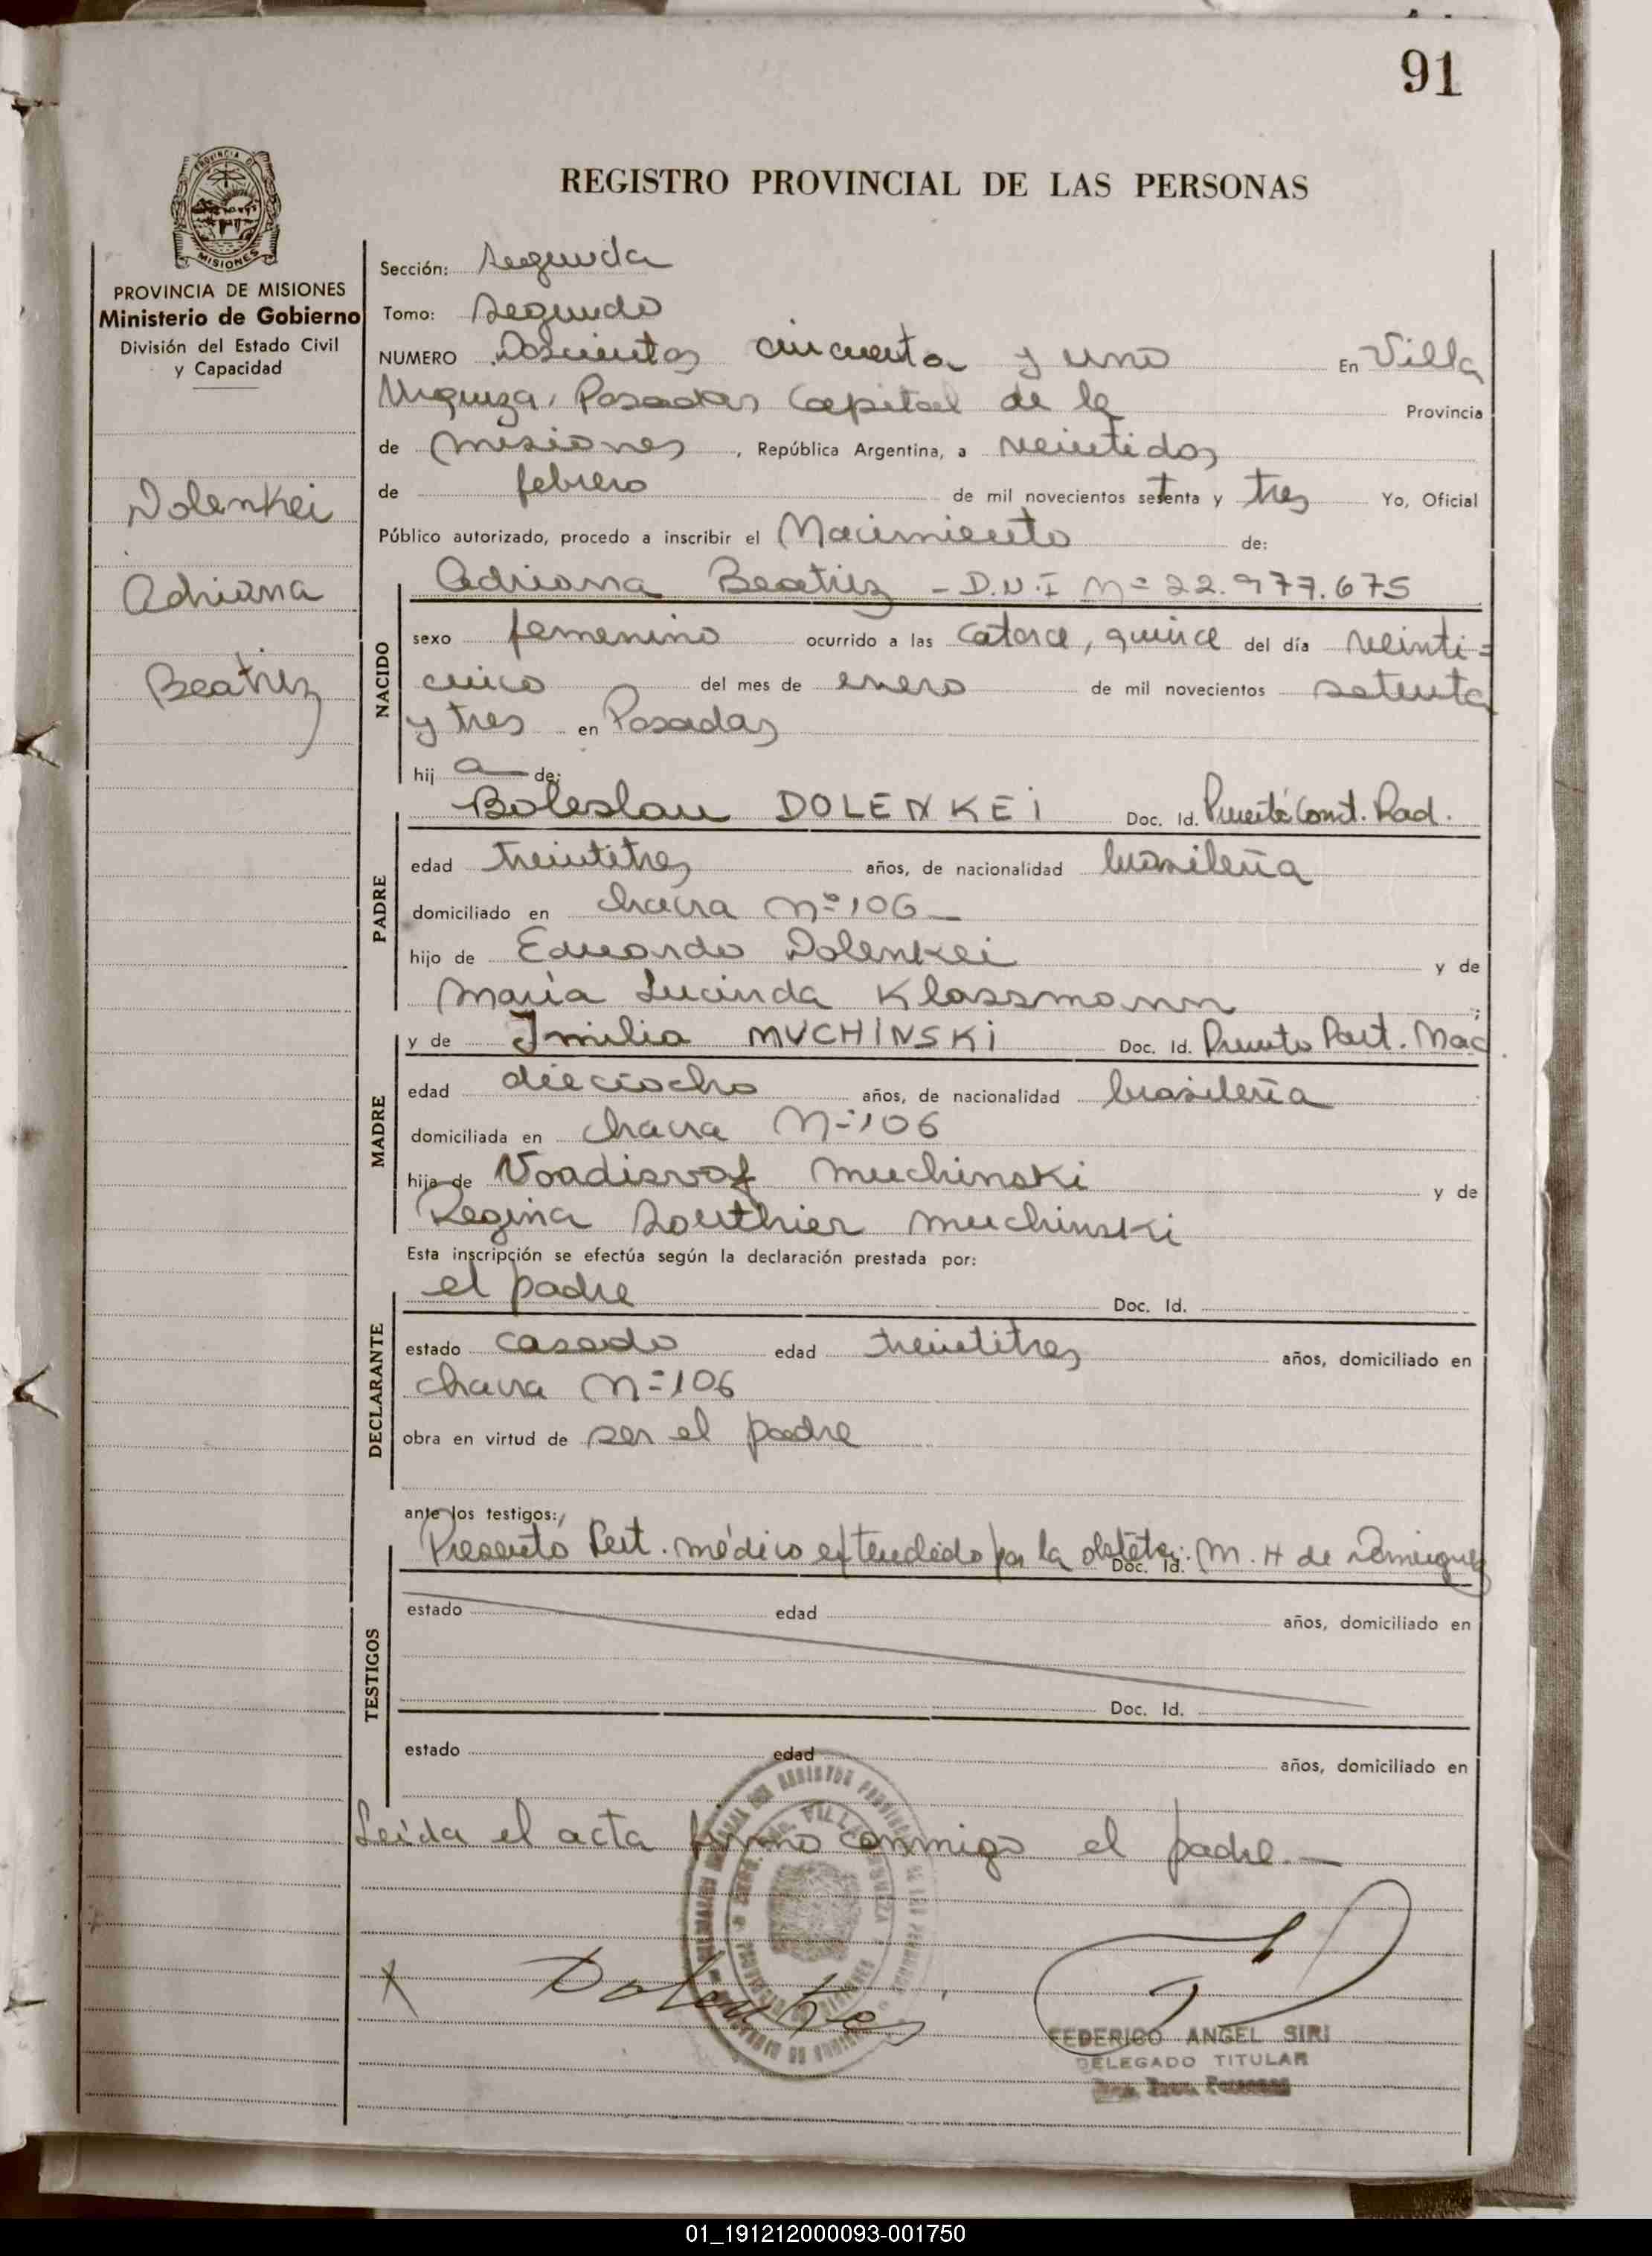 91
PROVINCIA DE MISIONES
REGISTRO PROVINCIAL DE LAS PERSONAS
PROVINCIA DE MISIONES
Ministerio de Gobierno
División del Estado Civil
y Capacidad
Dolenkei
Adriana
Beatriz
Sección: Segunda
Tomo: Segundo
NUMERO Doscientos cincuenta y uno En Villa
Urquiza, Posadas Capital de la Provincia
de Misiones, República Argentina, a veintidos
de febrero de mil novecientos setenta y tres Yo, Oficial
Público autorizado, procedo a inscribir el Nacimiento de:
NACIDO
Adriana Beatriz - D.N.I Nº 22.977.675
sexo femenino ocurrido a las catorce, quince del día veinti=
cinco del mes de enero de mil novecientos setenta
y tres en Posadas
hij a de:
PADRE
Boleslau DOLENKEI Doc. Id. Presentó Const. Rad.
edad treintitres años, de nacionalidad brasileña
domiciliado en chacra Nº 106
hijo de Eduardo Dolenkei y de
María Lucinda Klassmann ;
MADRE
y de Imilia MUCHINSKI Doc. Id. Presento Part. Nac.
edad dieciocho años, de nacionalidad brasileña
domiciliada en chacra Nº 106
hija de Voadisvaf Muchinski y de
Regina Southier Muchinski
Esta inscripción se efectúa según la declaración prestada por:
DECLARANTE
el padre Doc. Id.
estado casado edad treintitres años, domiciliado en
chacra Nº 106
obra en virtud de ser el padre
ante los testigos:
TESTIGOS
Presentó Cert. médico extendido por la obstetra: M. H de Dominguez Doc. Id.
estado edad años, domiciliado en
Doc. Id.
estado edad años, domiciliado en
Leida el acta firmo conmigo el padre.
Dolenkei
FEDERICO ANGEL SIRI
DELEGADO TITULAR
01_191212000093-001750